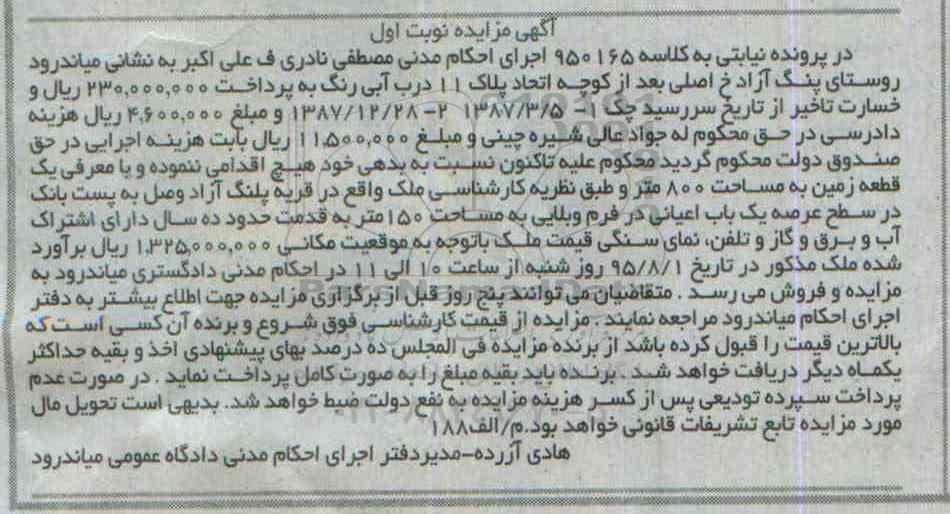 آگهی مزایده نوبت اول
در پرونده نیابتی به کلاسه ۹۵۰۱۶۵ اجرای احکام مدنی مصطفی نادری ف علی اکبر به نشانی میاندرود
روستای پنگ آزاد خ اصلی بعد از کوچه اتحاد پلاک ۱۱ درب آبی رنگ به پرداخت ۲۳۰,۰۰۰,۰۰۰ ریال و
خسارت تاخیر از تاریخ سررسید چک ۱- ۱۳۸۷/۳/۵ ۲- ۱۳۸۷/۱۲/۲۸ و مبلغ ۴,۶۰۰,۰۰۰ ریال هزینه
دادرسی در حق محکوم له جواد عالی شلیره چینی و مبلغ ۱۱,۵۰۰,۰۰۰ ریال بابت هزینه اجرایی در حق
صندوق دولت محکوم گردید محکوم علیه تاکنون نسبت به بدهی خود هیچ اقدامی ننموده و با معرفی یک
قطعه زمین به مساحت ۸۰۰ متر و طبق نظریه کارشناسی ملک واقع در قریه پلنگ آزاد وصل به پست بانک
در سطح عرصه یک باب اعیانی در فرم ویلایی به مساحت ۱۵۰متر به قدمت حدود ده سال دارای اشتراک
آب و برق و گاز و تلفن، نمای سنگی قیمت ملک باتوجه به موقعیت مکانی ۱,۳۲۵,۰۰۰,۰۰۰ ریال برآورد
شده ملک مذکور در تاریخ ۹۵/۸/۱ روز شنبه از ساعت ۱۰ الی ۱۱ در احکام مدنی دادگستری میاندرود به
مزایده و فروش می رسد . متقاضیان می توانند پنج روز قبل از برگزاری مزایده جهت اطلاع بیشتر به دفتر
اجرای احکام میاندرود مراجعه نمایند . مزایده از قیمت کارشناسی فوق شروع و برنده آن کسی است که
بالاترین قیمت را قبول کرده باشد از برنده مزایده فی المجلس ده درصد بهای پیشنهادی اخذ و بقیه حداکثر
یکماه دیگر دریافت خواهد شد . برنده باید بقیه مبلغ را به صورت کامل پرداخت نماید . در صورت عدم
پرداخت سپرده تودیعی پس از کسر هزینه مزایده به نفع دولت ضبط خواهد شد. بدیهی است تحویل مال
مورد مزایده تابع تشریفات قانونی خواهد بود.م/الف۱۸۸
هادی آزرده-مدیردفتر اجرای احکام مدنی دادگاه عمومی میاندرود